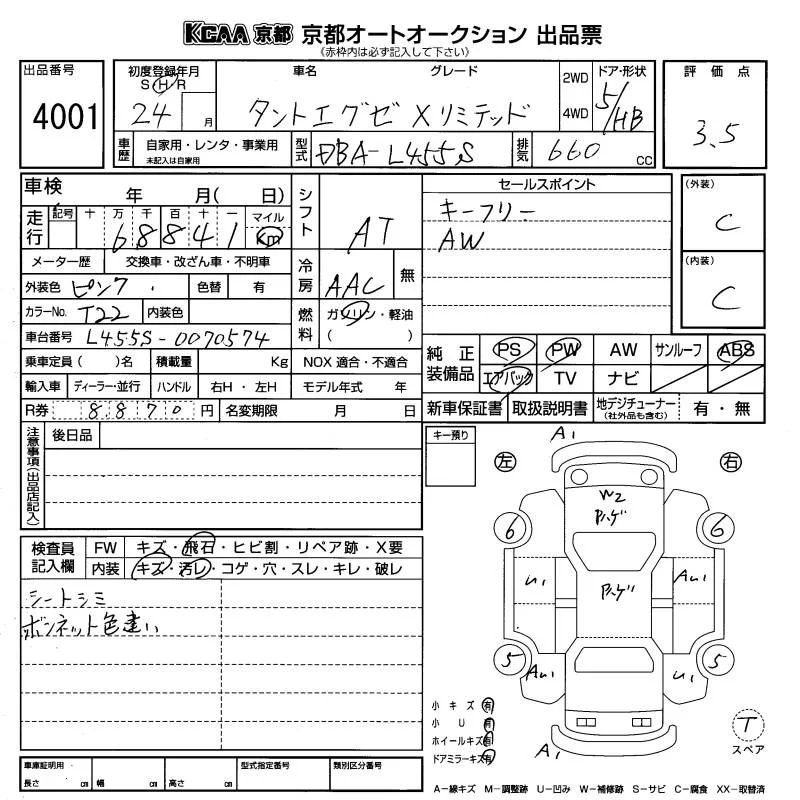 KCAA 京都 京都オートオークション 出品票
(赤枠内は必ず記入して下さい)
出品番号 4001
初度登録年月 S H R 24 月
車名 グレード タントエグゼ Xリミテッド
2WD 4WD
ドア・形状 5/HB
評価点 3.5
車歴 自家用・レンタ・事業用 未記入は自家用
型式 DBA-L455S
排気 660 CC
車検 年 月( 日)
シフト AT
セールスポイント
キーフリー
AW
(外装) C
(内装) C
走行 記号 十 万 千 百 十 一 マイル Km
68841
メーター歴 交換車・改ざん車・不明車
冷房 AAC 無
外装色 ピンク 色替 有
カラーNo. T22 内装色
燃料 ガソリン・軽油 ( )
車台番号 L455S-0070574
乗車定員( )名 積載量 Kg NOX 適合・不適合
輸入車 ディーラー・並行 ハンドル 右H・左H モデル年式 年
R券 8870円 名変期限 月 日
純正装備品 PS PW AW サンルーフ ABS
エアバック TV ナビ
新車保証書 取扱説明書 地デジチューナー (社外品も含む) 有・無
注意事項(出品店記入)
後日品
キー預り
左 右
A1
W2
ｱﾊｹﾞ
6 6
U1 ｱﾊｹﾞ AU1
5 5
AU1 U1
A1
検査員記入欄 FW キズ・飛石・ヒビ割・リペア跡・X要
内装 キズ・汚レ・コゲ・穴・スレ・キレ・破レ
シートシミ
ボンネット色違い
小キズ 有
小U 有
ホイールキズ 有
ドアミラーキズ 有
T
スペア
車庫証明用 長さ cm 幅 cm 高さ cm
型式指定番号 類別区分番号
A−線キズ M−調整跡 U−凹み W−補修跡 S−サビ C−腐食 XX−取替済